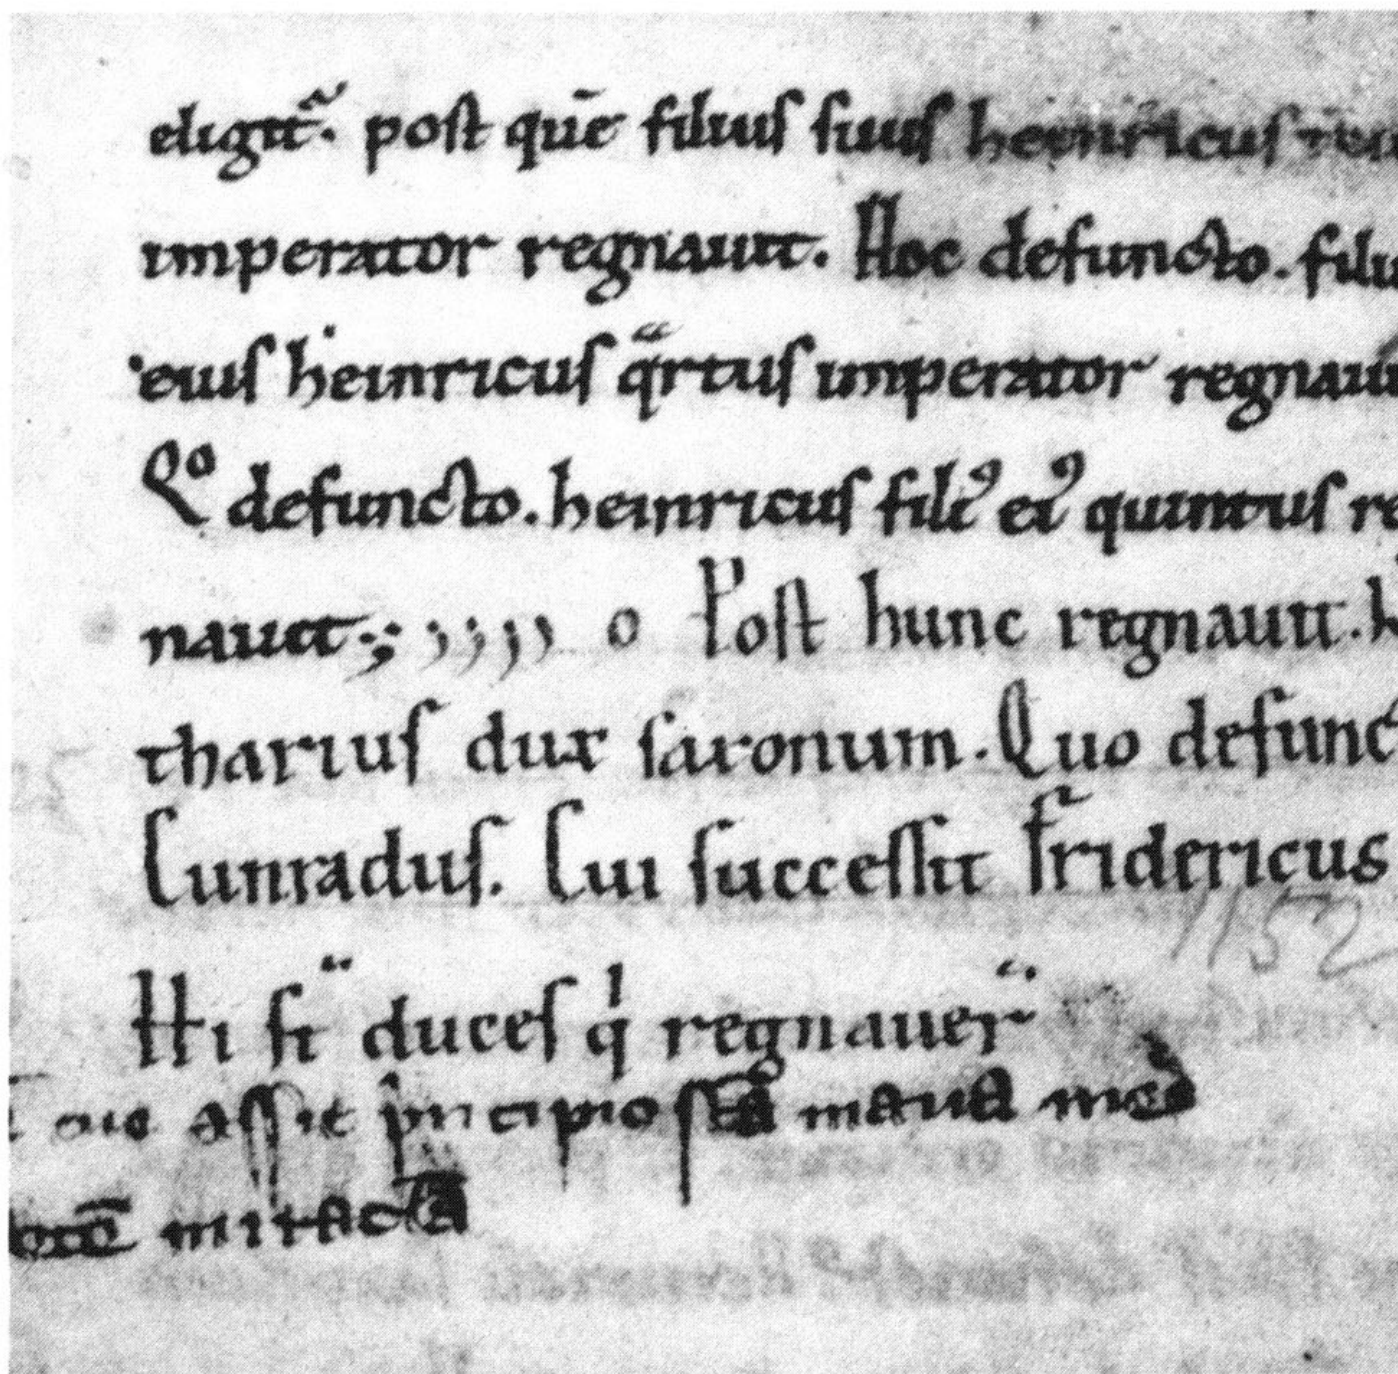 eligit̃. post quē filius suus heinricus
imperator regnauit. Hoc defuncto. filiu
eius heinricus qͣrtus imperator regnaui
Qͦ defuncto. heinricus fili᷒ ei᷒ quintus re
nauit; ; ; ; ; o Post hunc regnauit.
tharius dux saxonum. Quo defunc
Cunradus. Cui successit Fridericus
1152
Hi st̃ duces qͥ regnauer̃
assit pͥncipio sc̄a maria